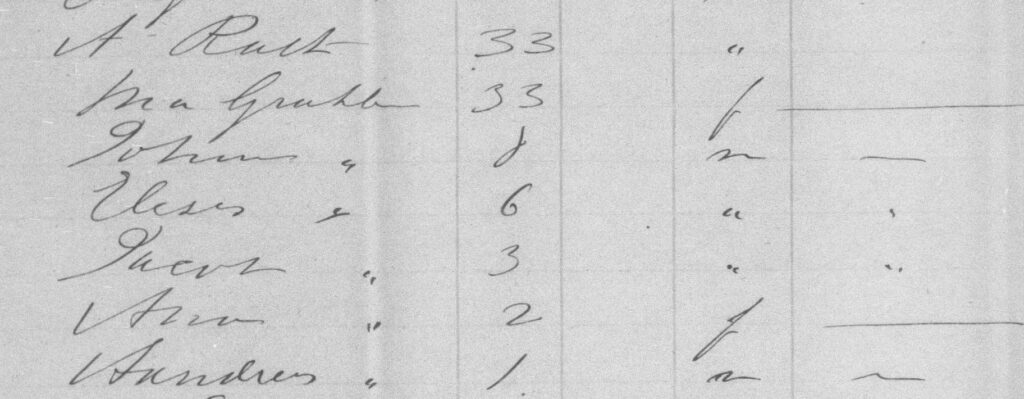 A Rust 33 "
Ma Grahl 33 f —
Johann " 8 m —
Uleses " 6 " "
Jacob " 3 " "
Anna " 2 f —
Handrers " 1 m —